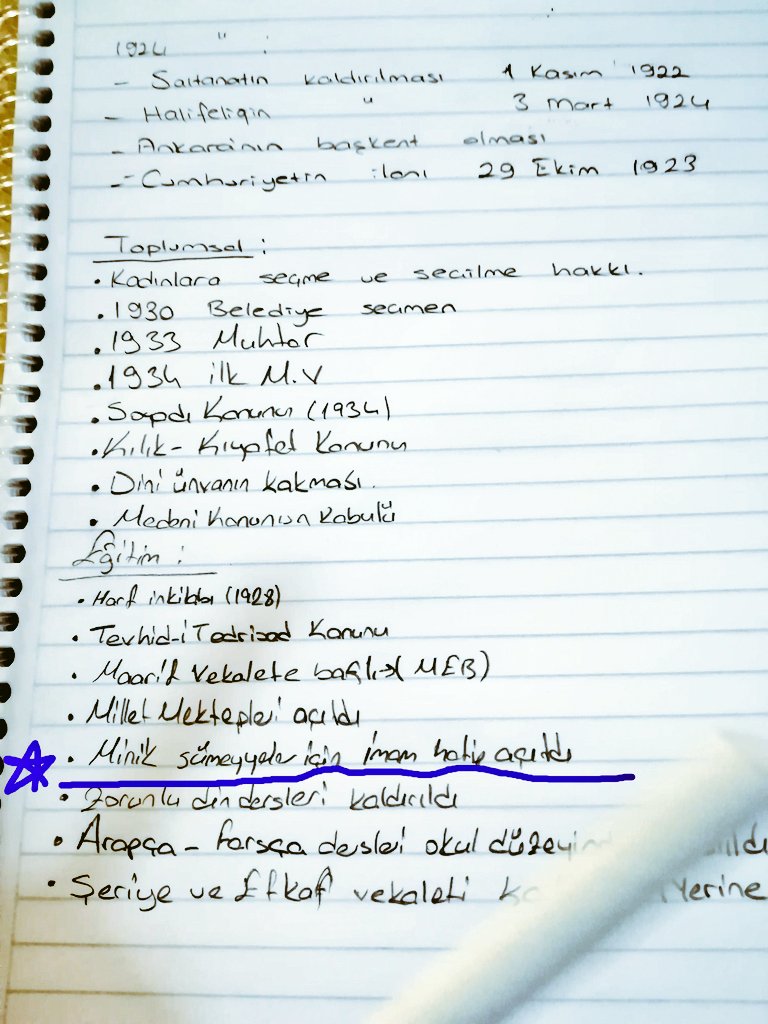 1924 " :
- Saltanatın kaldırılması 1 Kasım 1922
- Halifeliğin " 3 Mart 1924
- Ankara'nın başkent olması
- Cumhuriyetin ilanı 29 Ekim 1923
Toplumsal :
• Kadınlara seçme ve seçilme hakkı.
• 1930 Belediye seçmen
• 1933 Muhtar
• 1934 ilk M.V
• Soyadı Kanunu (1934)
• Kılık - Kıyafet Kanunu
• Dini ünvanın kakması.
• Medeni Kanunun Kabulü
Eğitim :
• Harf inkilabı (1928)
• Tevhid-i Tedrisad Kanunu
• Maarif Vekalete bağlı→(MEB)
• Millet Mektepleri açıldı
• Minik sümeyyeler için imam hatip açıldı
• Zorunlu din dersleri kaldırıldı
• Arapça - Farsça dersleri okul
• Şeriye ve Efkaf vekaleti Yerine